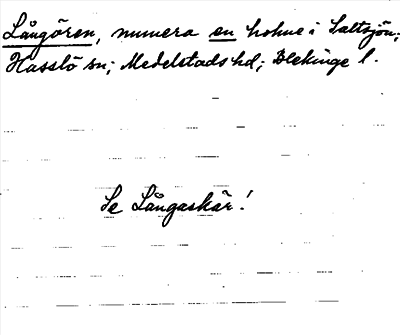 Långören, numera en holme i Saltsjön;
Hasslö sn; Medelstads hd; Blekinge l.
Se Långaskär!